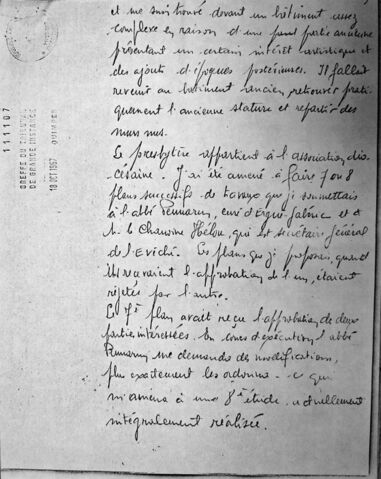 et me suis trouvé devant un bâtiment assez
complexe en raison d'une part partie ancienne
présentant un certain intérêt artistique et
des ajouts d'époques postérieures. Il fallait
revenir au batiment ancien, retrouver prati
quement l'ancienne stature et repartir des
murs nus.
Le presbytère appartient à l'association dio-
césaine. J'ai été amené à faire 7 ou 8
plans successifs de travaux que je soumettais
à l'abbé Pennarun, curé d'Ergué-Gabéric et à
M. le Chanoine Hélou, qui est secrétaire général
de l'Evêché. Les plans que je proposais, quand
ils avaient l'approbation de l'un, étaient
rejetés par l'autre.
Le 7è plan avait reçu l'approbation de deux
parties intéressées. En cours d'exécution l'abbé
Pennarun me demanda des modifications,
plus exactement les ordonna - ce qui
m'amena à une 8è étude, actuellement
intégralement réalisée.
111107
GREFFE DU TRIBUNAL
DE GRANDE INSTANCE
18 OCT 1967 QUIMPER